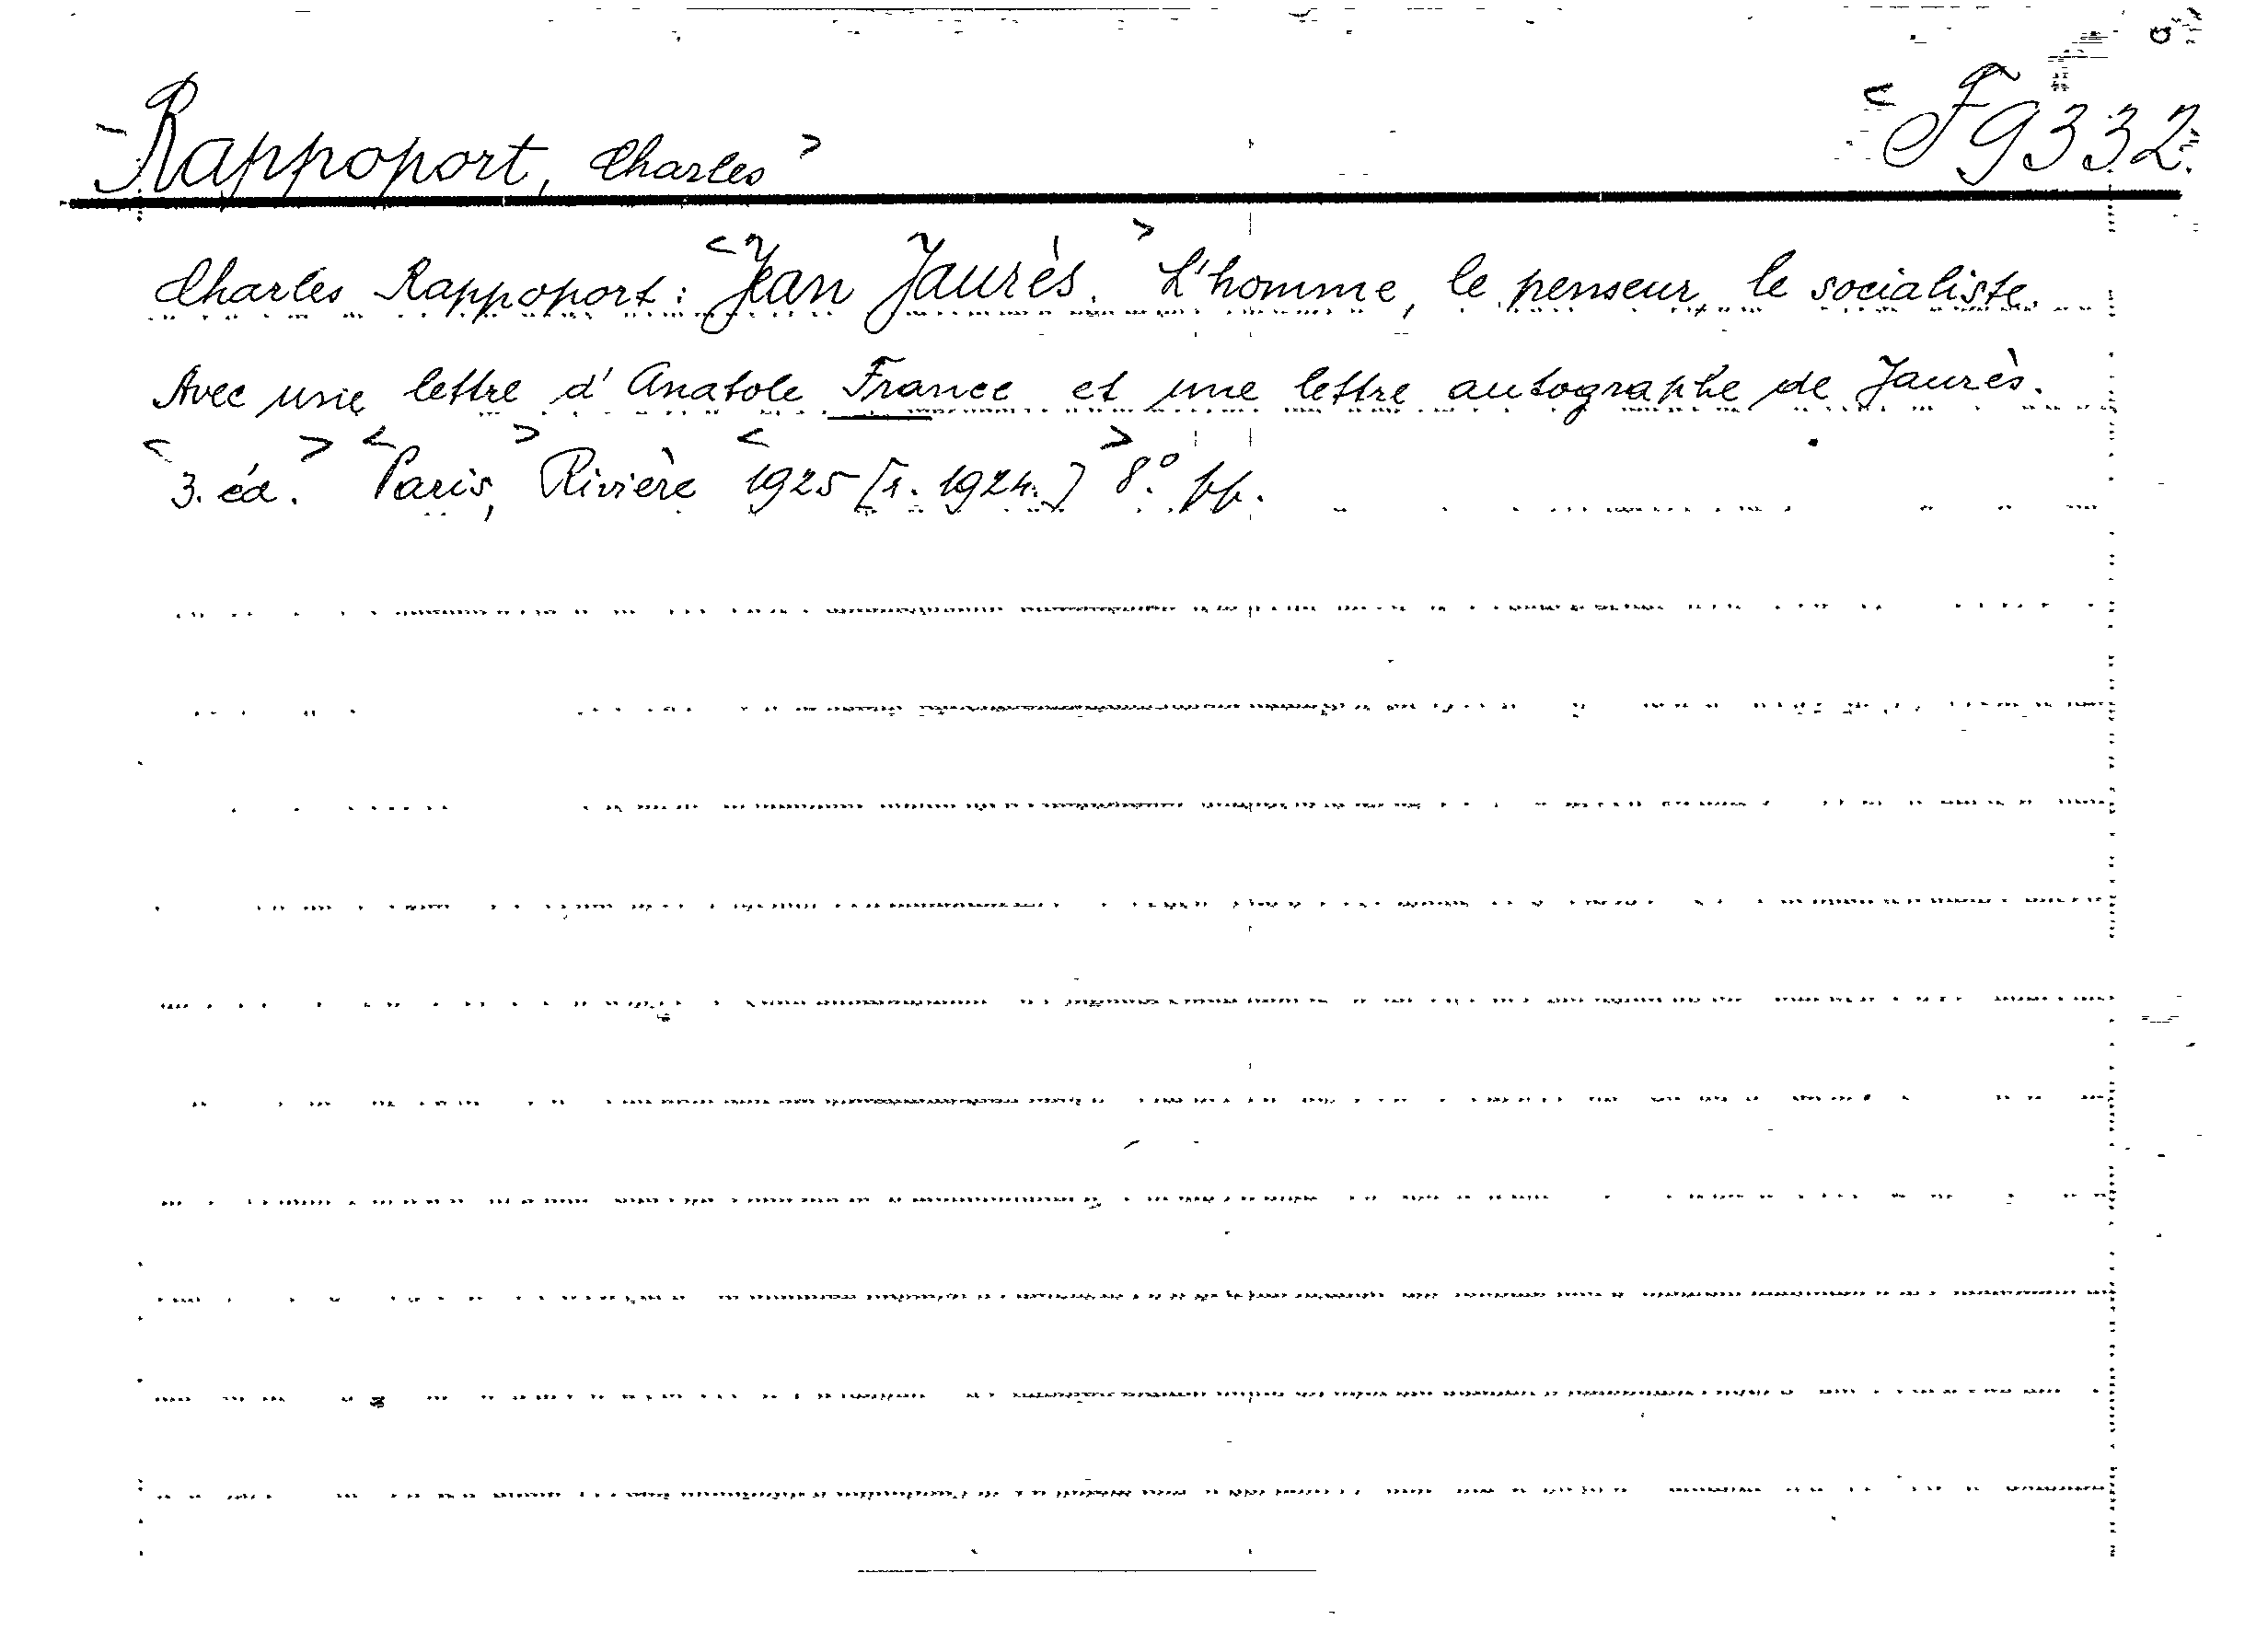 <Rappoport, Charles> <F 9332.
Charles Rappoport: <Jean Jaurès.> L'homme, le penseur, le socialiste.
Avec une lettre d'Anatole France et une lettre autographe de Jaurès.
<3. éd.> <Paris,> Rivière <1925 [1. 1924.]> 8° pp.